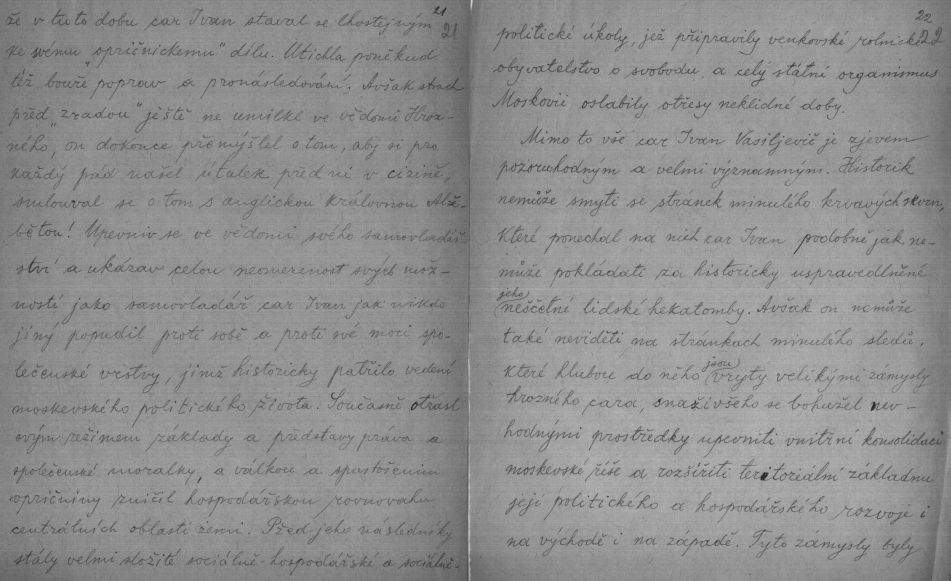 21
21
že v tuto dobu car Ivan stával se lhostejným
ke svému „opričnickému“ dílu. Utichla poněkud
též bouře poprav a pronásledování. Avšak strach
před „zradou“ ještě ne umilkl ve vědomí Hroz-
ného, on dokonce přemýšlel o tom, aby si pro
každý pád našel útulek před ní v cizině,
smlouval se o tom s anglickou královnou Alž-
bětou! Upevniv se ve vědomí svého samovladář
ství a ukázav celou neomezenost svých mož-
ností jako samovladář car Ivan jak nikdo
jiný popudil proti sobě a proti své moci spo-
lečenské vrstvy, jimž historicky patřilo vedení
moskevského politického života. Současně otřásl
svým režimem základy a představy práva a
společenské morálky, a válkou a spustošením
opričniny zničil hospodářskou rovnováhu
centrálních oblastí země. Před jeho následníky
stály velmi složité sociálně-hospodářské a sociálně-
22
22
politické úkoly, jež připravily venkovské rolnické
obyvatelstvo o svobodu, a celý státní organismus
Moskovii oslabily otřesy neklidné doby.
Mimo to vše car Ivan Vasiljevič je zjevem
pozoruhodným a velmi významným. Historik
nemůže smýti se stránek minulého krvavých skvrn,
které ponechal na nich car Ivan podobně jak ne-
může pokládati za historicky uspravedlněné
jeho
nesčetné lidské hekatomby. Avšak on nemůže
také neviděti na stránkách minulého sledů,
které hluboce do něho jsou vryty velikými zámysly
hrozného cara, snaživšího se bohužel nev-
hodnými prostředky upevniti vnitřní konsolidaci
moskevské říše a rozšířiti teritoriální základnu
její politického a hospodářského rozvoje i
na východě i na západě. Tyto zámysly byly